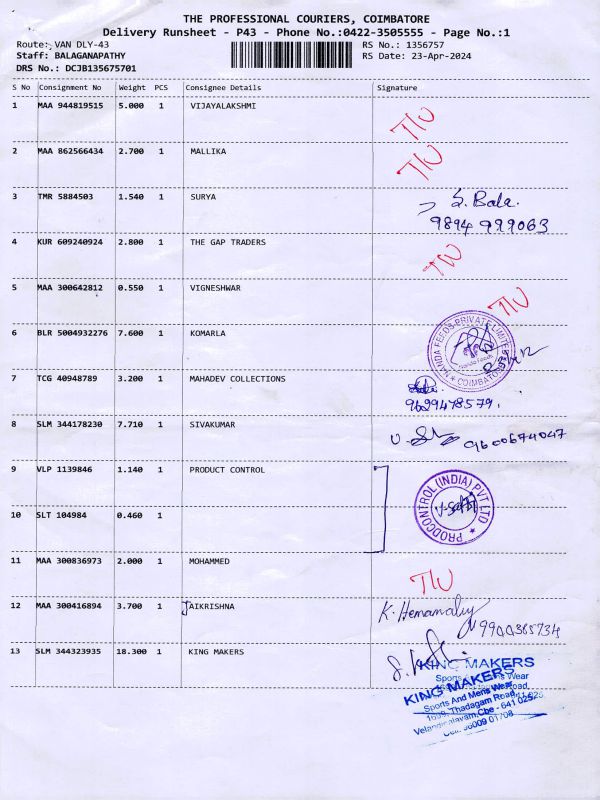 THE PROFESSIONAL COURIERS, COIMBATORE
Delivery Runsheet - P43 - Phone No.:0422-3505555 - Page No.:1
Route: VAN DLY-43 RS No.: 1356757
Staff: BALAGANAPATHY RS Date: 23-Apr-2024
DRS No.: DCJB135675701
S No Consignment No Weight PCS Consignee Details Signature
1 MAA 944819515 5.000 1 VIJAYALAKSHMI T/U
2 MAA 862566434 2.700 1 MALLIKA T/U
3 TMR 5884503 1.540 1 SURYA S. Bala.
9894 999063
4 KUR 609240924 2.800 1 THE GAP TRADERS T/U
5 MAA 300642812 0.550 1 VIGNESHWAR T/U
6 BLR 5004932276 7.600 1 KOMARLA
NANDA FEEDS PRIVATE LIMITED
Nanda Feeds
COIMBATORE
7 TCG 40948789 3.200 1 MAHADEV COLLECTIONS
9629478579.
8 SLM 344178230 7.710 1 SIVAKUMAR 9600674047
9 VLP 1139846 1.140 1 PRODUCT CONTROL
PRODCONTROL (INDIA) PVT LTD
10 SLT 104984 0.460 1
11 MAA 300836973 2.000 1 MOHAMMED T/U
12 MAA 300416894 3.700 1 JAIKRISHNA K. Hemanaliy
9900385734
13 SLM 344323935 18.300 1 KING MAKERS
KING MAKERS
KING MAKERS
Sports And Mens Wear
Thadagam Road,
Cbe - 641 025